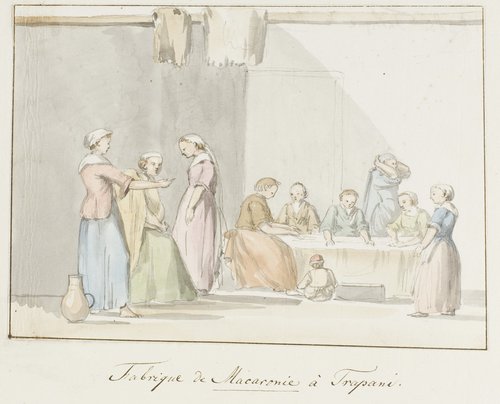 Fabrique de Macaronie à Trapani.